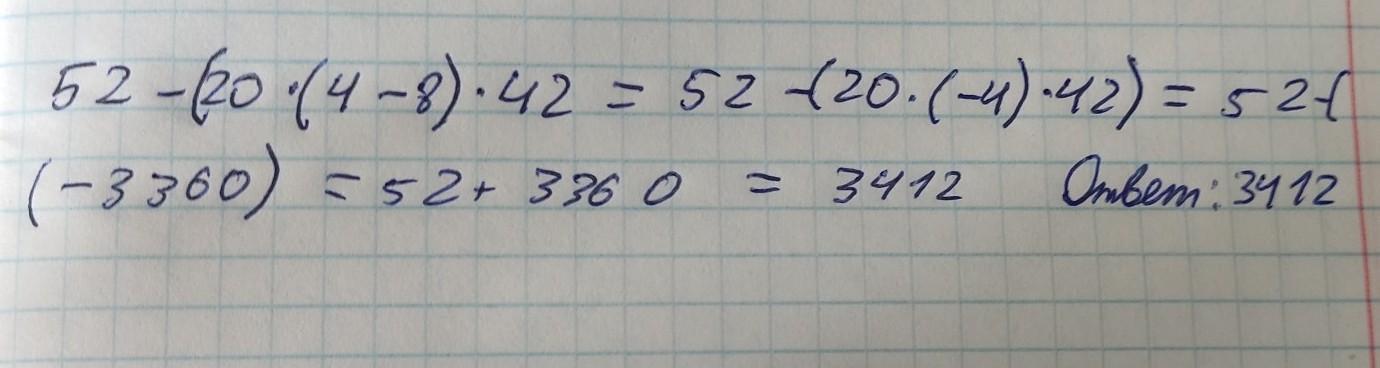 52 - (20 · (4 - 8) · 42 = 52 - (20 · (-4) · 42) = 52 - (
(-3360) = 52 + 3360 = 3412 Ответ: 3412